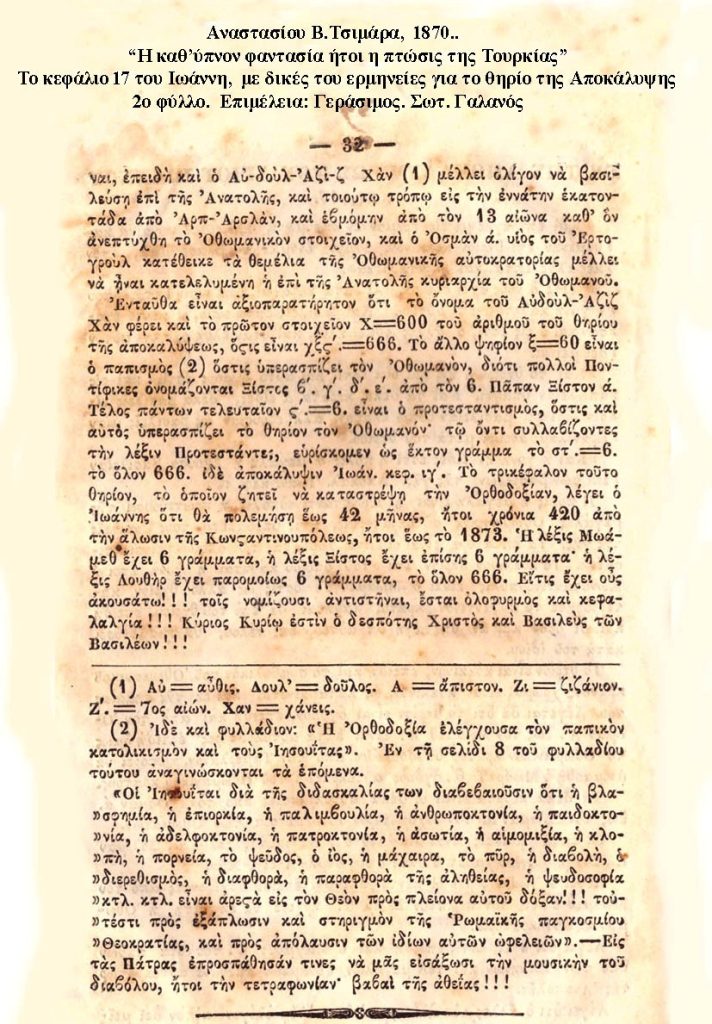 Αναστασίου Β.Τσιμάρα, 1870..
“Η καθ’ύπνον φαντασία ήτοι η πτώσις της Τουρκίας”
Το κεφάλιο 17 του Ιωάννη, με δικές του ερμηνείες για το θηρίο της Αποκάλυψης
2ο φύλλο. Επιμέλεια: Γεράσιμος. Σωτ. Γαλανός
— 32 —
ναι, ἐπειδὴ καὶ ὁ Αὐ-δοὺλ-Ἀζὶ-ζ Χὰν (1) μέλλει ὀλίγον νὰ βασι-
λεύσῃ ἐπὶ τῆς Ἀνατολῆς, καὶ τοιούτῳ τρόπῳ εἰς τὴν ἐννάτην ἑκατον-
τάδα ἀπὸ Ἀρπ-Ἀρσλὰν, καὶ ἑβμόμην ἀπὸ τὸν 13 αἰῶνα καθ’ ὃν
ἀνεπτύχθη τὸ Ὀθωμανικὸν στοιχεῖον, καὶ ὁ Ὀσμὰν ά. υἱος τοῦ Ἐρτο-
γροὺλ κατέθεικε τὰ θεμέλια τῆς Ὀθωμανικῆς αὐτοκρατορίας μέλλει
νὰ ἦναι κατελελυμένη ἡ ἐπὶ τῆς Ἀνατολῆς κυριαρχία τοῦ Ὀθωμανοῦ.
Ἐνταῦθα εἶναι ἀξιοπαρατήρητον ὅτι τὸ ὄνομα τοῦ Αὐδοὺλ-Ἀζὶζ
Χὰν φέρει καὶ τὸ πρῶτον στοιχεῖον Χ=600 τοῦ ἀριθμοῦ τοῦ θηρίου
τῆς ἀποκαλύψεως, ὅςτις εἶναι χξς΄.=666. Τὸ ἄλλο ψηφίον ξ=60 εἶναι
ὁ παπισμὸς (2) ὅστις ὑπερασπίζει τὸν Ὀθωμανὸν, διότι πολλοὶ Πον-
τίφικες ὀνομάζονται Ξίστος β΄. γ΄. δ΄. ε΄. ἀπὸ τὸν 6. Πᾶπαν Ξίστον ά.
Τέλος πάντων τελευταῖον ς΄.=6. εἶναι ὁ προτεσταντισμὸς, ὅστις καὶ
αὐτὸς ὑπερασπίζει τὸ θηρίον τὸν Ὀθωμανόν· τῷ ὄντι συλλαβίζοντες
τὴν λέξιν Προτεστάντες, εὑρίσκομεν ὡς ἕκτον γράμμα τὸ στ΄.=6.
τὸ ὅλον 666. ἰδὲ ἀποκάλυψιν Ἰωάν. κεφ. ιγ΄. Τὸ τρικέφαλον τοῦτο
θηρίον, τὸ ὁποῖον ζητεῖ νὰ καταστρέψῃ τὴν Ὀρθοδοξίαν, λέγει ὁ
Ἰωάννης ὅτι θὰ πολεμήσῃ ἕως 42 μῆνας, ἤτοι χρόνια 420 ἀπὸ
τὴν ἅλωσιν τῆς Κωνςαντινουπόλεως, ἤτοι ἕως τὸ 1873. Ἡ λέξις Μωά-
μεθ ἔχει 6 γράμματα, ἡ λέξις Ξίστος ἔχει ἐπίσης 6 γράμματα· ἡ λέ-
ξις Λουθὴρ ἔχει παρομοίως 6 γράμματα, τὸ ὅλον 666. Εἴτις ἔχει οὖς
ἀκουσάτω!!! τοῖς νομίζουσι ἀντιστῆναι, ἔσται ὀλοφυρμὸς καὶ κεφα-
λαλγία!!! Κύριος Κυρίῳ ἐστὶν ὁ δεσπότης Χριστὸς καὶ Βασιλεὺς τῶν
Βασιλέων!!!
(1) Αὐ=αὖθις. Δουλ’=δοῦλος. Α=ἄπιστον. Ζι=ζιζάνιον.
Ζ΄.=7ος αἰών. Χαν=χάνεις.
(2) Ἰδὲ καὶ φυλλάδιον: «Ἡ Ὀρθοδοξία ἐλέγχουσα τὸν παπικὸν
κατολικισμὸν καὶ τοὺς Ἰησουΐτας». Ἐν τῇ σελίδι 8 τοῦ φυλλαδίου
τούτου ἀναγινώσκονται τὰ ἑπόμενα.
«Οἱ Ἰησουῖται διὰ τῆς διδασκαλίας των διαβεβαιοῦσιν ὅτι ἡ βλα-
»σφημία, ἡ ἐπιορκία, ἡ παλιμβουλία, ἡ ἀνθρωποκτονία, ἡ παιδοκτο-
»νία, ἡ ἀδελφοκτονία, ἡ πατροκτονία, ἡ ἀσωτία, ἡ αἱμομιξία, ἡ κλο-
»πὴ, ἡ πορνεία, τὸ ψεῦδος, ὁ ἰὸς, ἡ μάχαιρα, τὸ πῦρ, ἡ διαβολὴ, ὁ
»διερεθισμὸς, ἡ διαφθορὰ, ἡ παραφθορὰ τῆς ἀληθείας, ἡ ψευδοσοφία
»κτλ. κτλ. εἶναι ἀρεςὰ εἰς τὸν Θεὸν πρὸς πλείονα αὐτοῦ δόξαν!!! του-
»τέστι πρὸς ἐξάπλωσιν καὶ στηριγμὸν τῆς Ῥωμαϊκῆς παγκοσμίου
»Θεοκρατίας, καὶ πρὸς ἀπόλαυσιν τῶν ἰδίων αὐτῶν ὠφελειῶν».—Εἰς
τὰς Πάτρας ἐπροσπάθησάν τινες νὰ μᾶς εἰσάξωσι τὴν μουσικὴν τοῦ
διαβόλου, ἤτοι τὴν τετραφωνίαν· βαβαὶ τῆς ἀθείας!!!